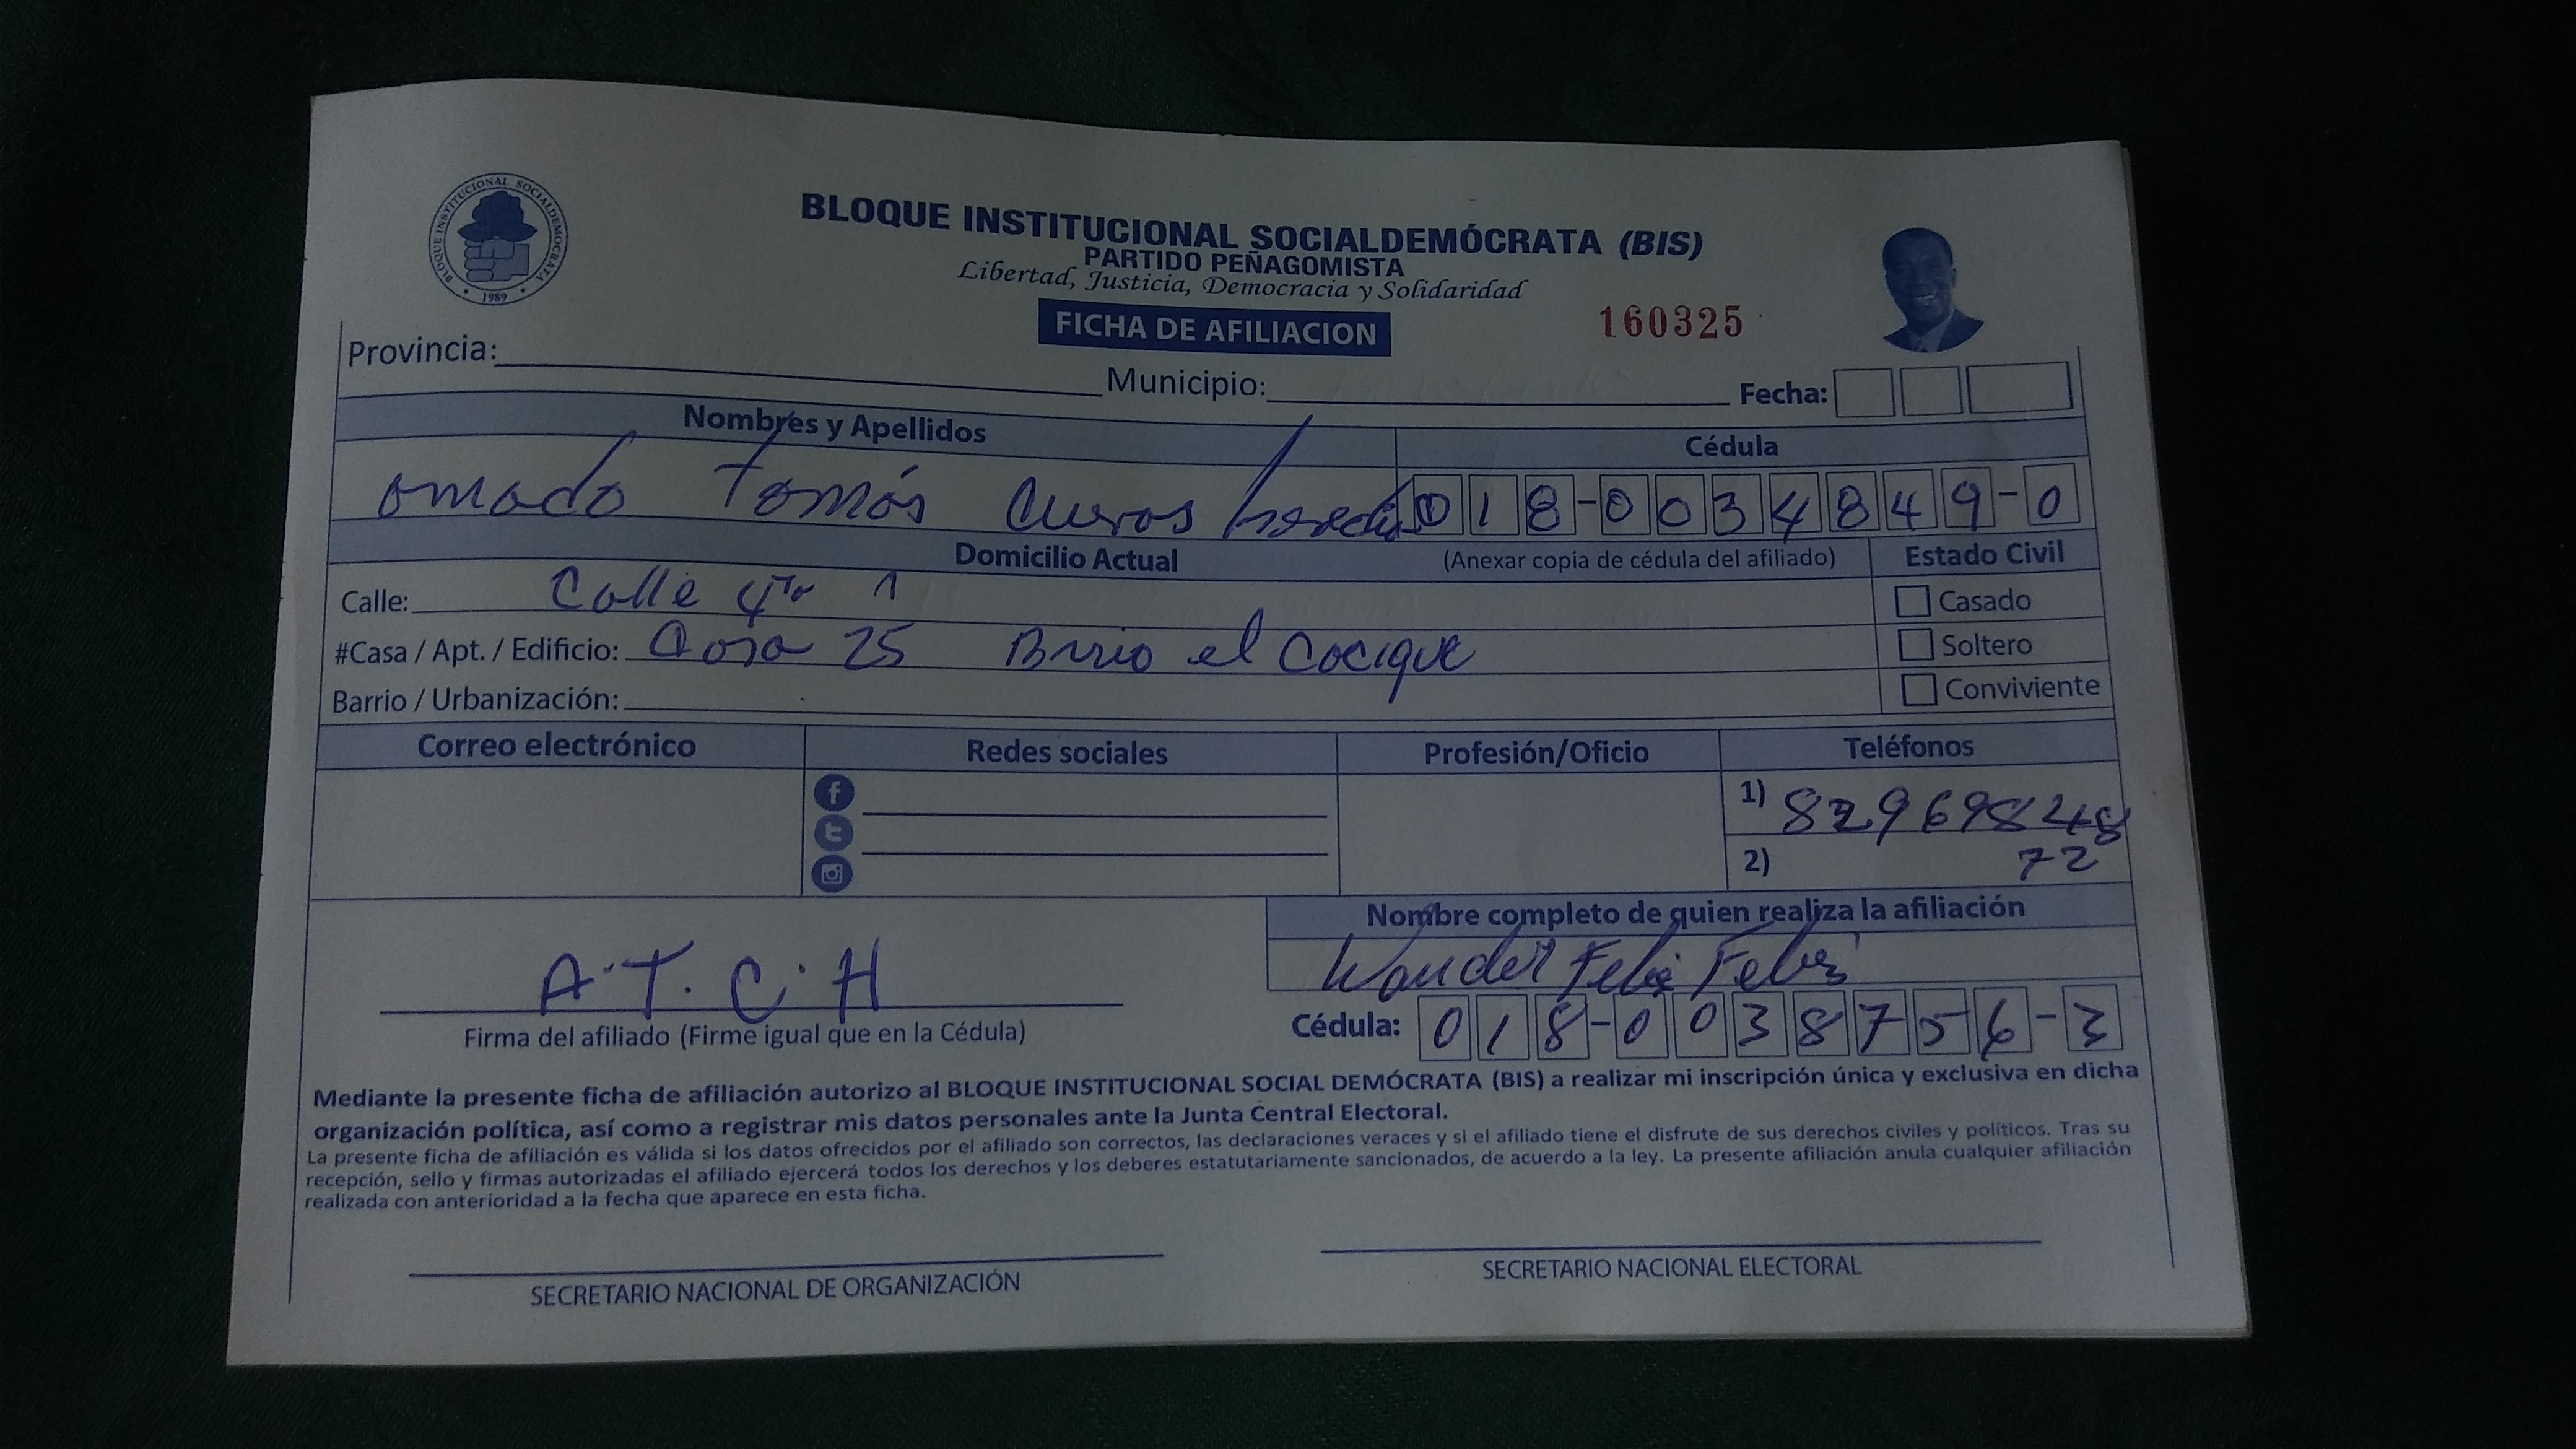 BLOQUE INSTITUCIONAL SOCIALDEMOCRATA
1989
BLOQUE INSTITUCIONAL SOCIALDEMÓCRATA (BIS)
PARTIDO PEÑAGOMISTA
Libertad, Justicia, Democracia y Solidaridad
FICHA DE AFILIACION
160325
Provincia: Municipio: Fecha:
Nombres y Apellidos Cédula
omado tomás Cuevas heredia 018-0034849-0
Domicilio Actual (Anexar copia de cédula del afiliado) Estado Civil
Calle: Calle 4ta 1
Casado
#Casa / Apt. / Edificio: Casa 25 Brrio el Cocique
Soltero
Barrio / Urbanización:
Conviviente
Correo electrónico Redes sociales Profesión/Oficio Teléfonos
1) 82969848
2) 72
Nombre completo de quien realiza la afiliación
Wander Feliz Feliz
A.T.C.H
Firma del afiliado (Firme igual que en la Cédula)
Cédula: 018-0038756-3
Mediante la presente ficha de afiliación autorizo al BLOQUE INSTITUCIONAL SOCIAL DEMÓCRATA (BIS) a realizar mi inscripción única y exclusiva en dicha
organización política, así como a registrar mis datos personales ante la Junta Central Electoral.
La presente ficha de afiliación es válida si los datos ofrecidos por el afiliado son correctos, las declaraciones veraces y si el afiliado tiene el disfrute de sus derechos civiles y políticos. Tras su
recepción, sello y firmas autorizadas el afiliado ejercerá todos los derechos y los deberes estatutariamente sancionados, de acuerdo a la ley. La presente afiliación anula cualquier afiliación
realizada con anterioridad a la fecha que aparece en esta ficha.
SECRETARIO NACIONAL DE ORGANIZACIÓN
SECRETARIO NACIONAL ELECTORAL